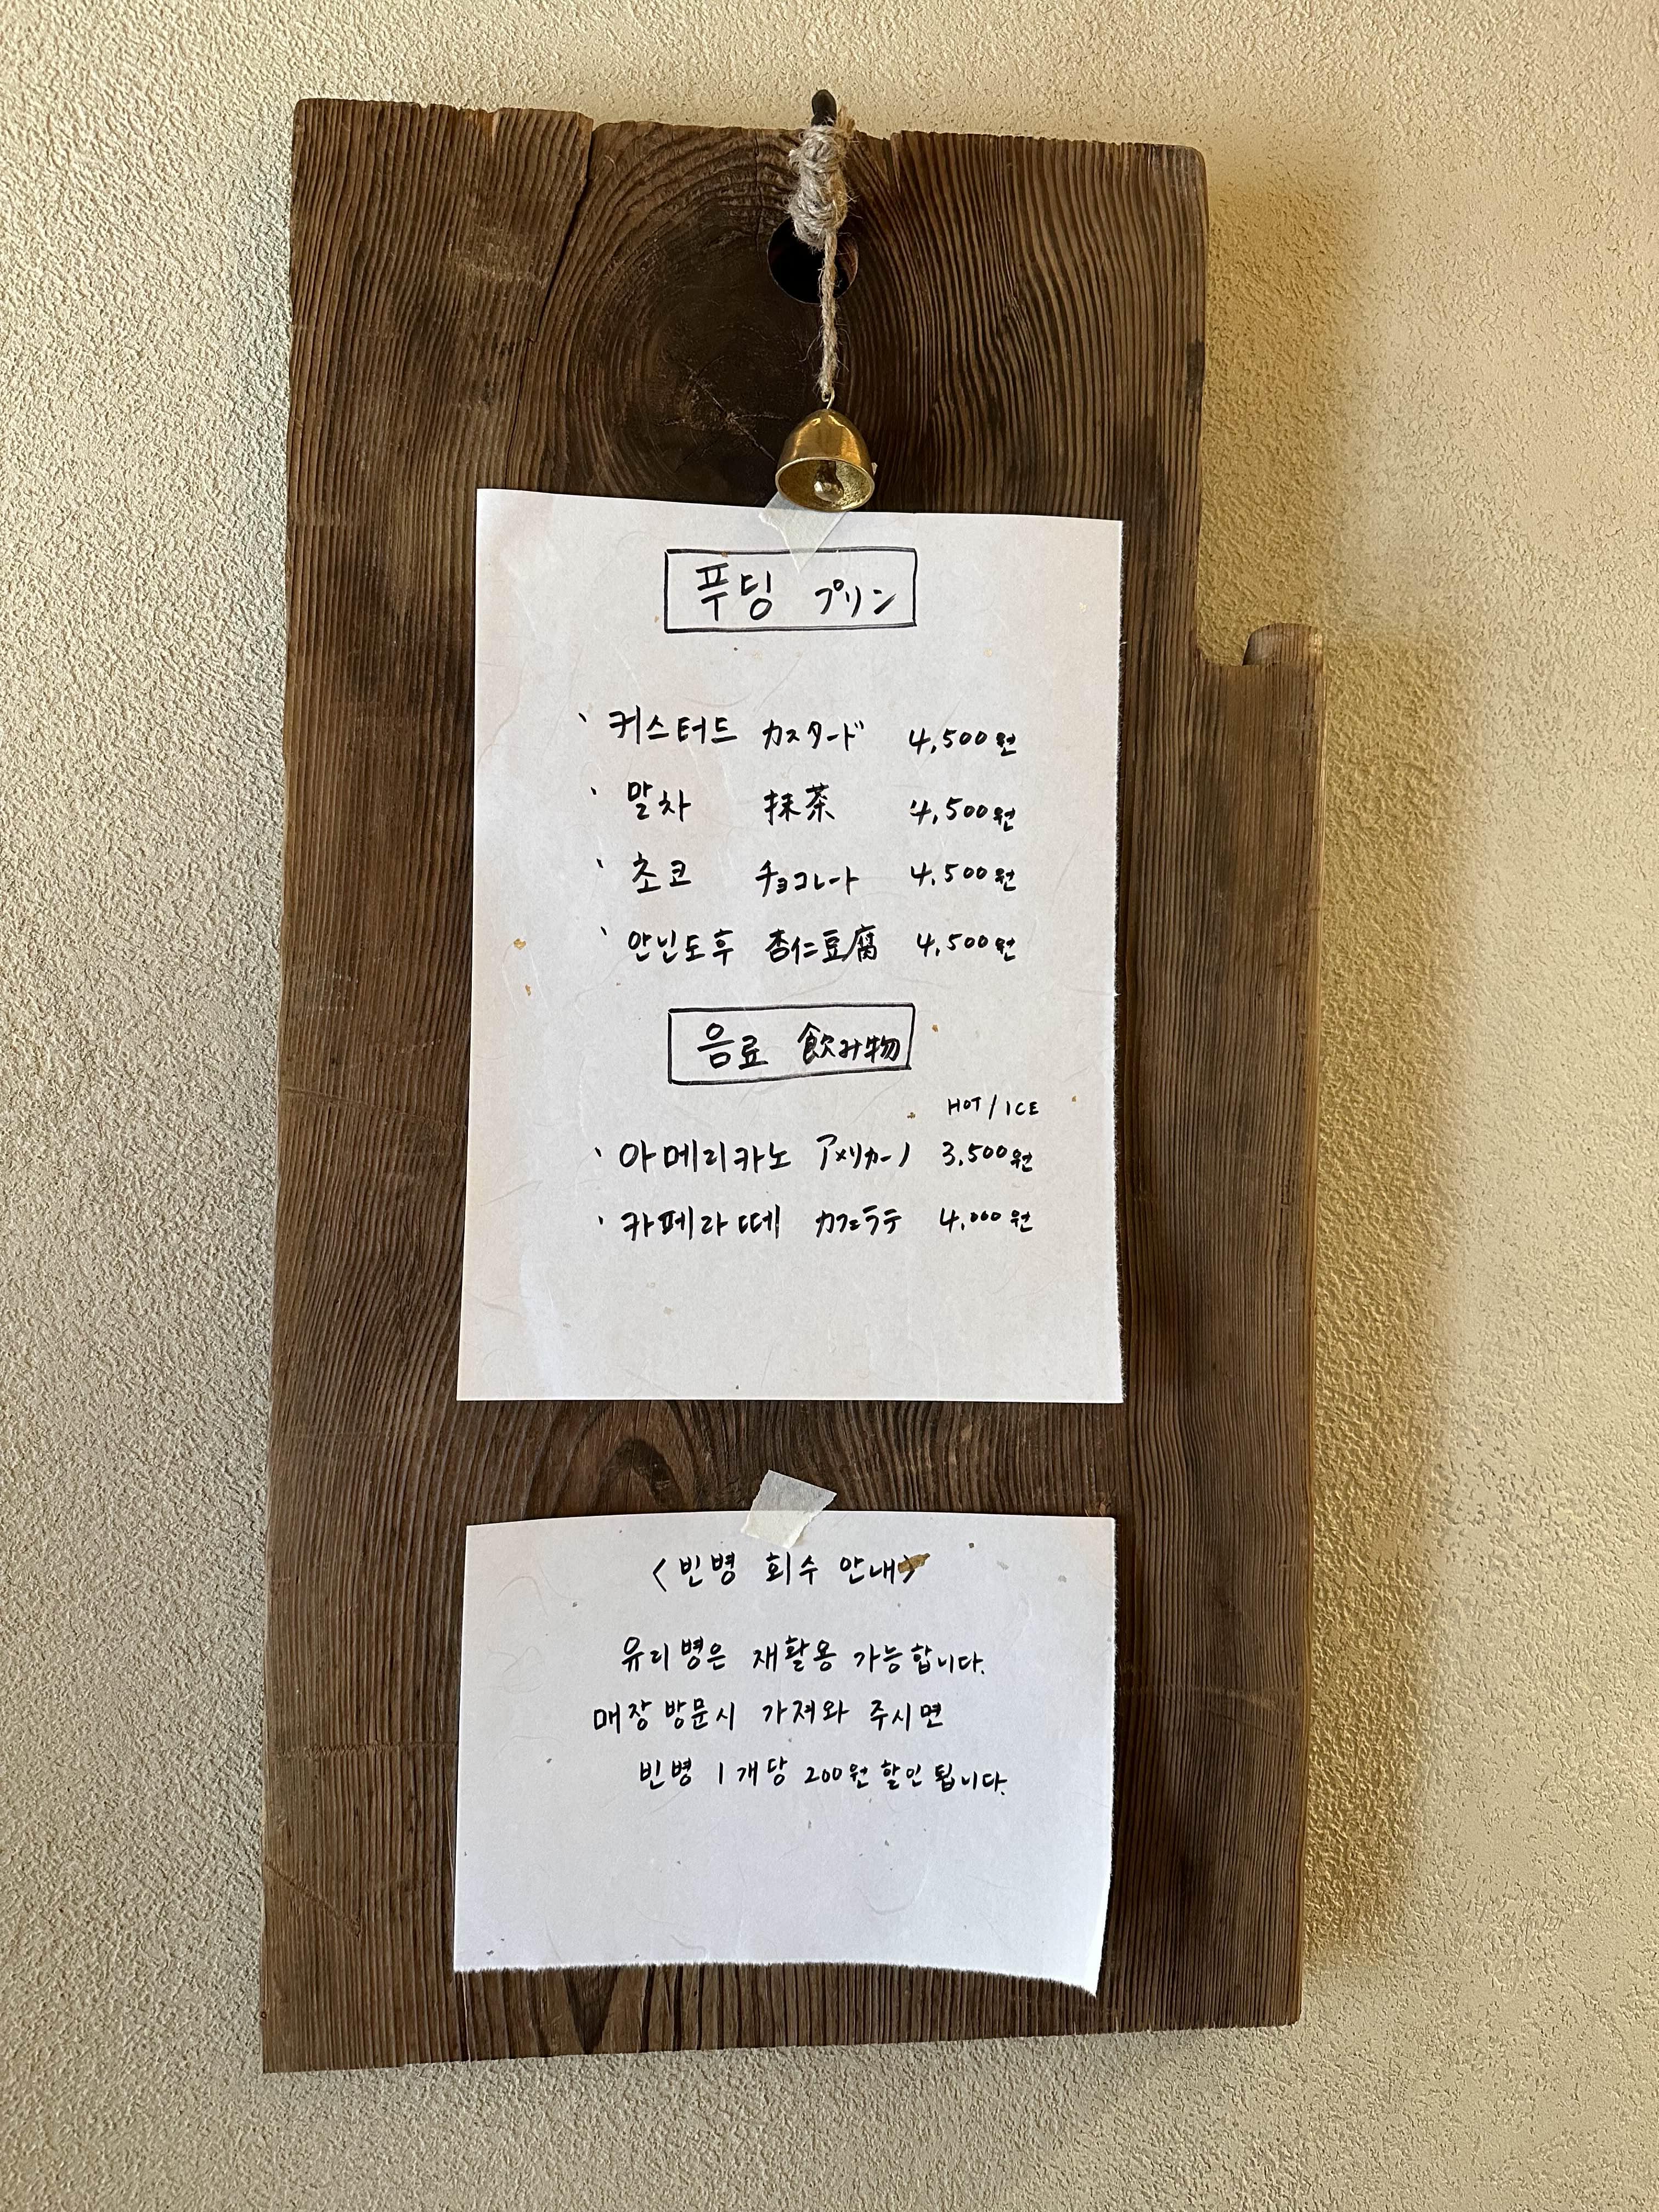 푸딩 プリン
커스터드 カスタード 4,500원
말차 抹茶 4,500원
초코 チョコレート 4,500원
안닌도후 杏仁豆腐 4,500원
음료 飲み物
HOT/ICE
아메리카노 アメリカーノ 3,500원
카페라떼 カフェラテ 4,000원
<빈병 회수 안내>
유리병은 재활용 가능합니다.
매장 방문시 가져와 주시면
빈병 1개당 200원 할인 됩니다.